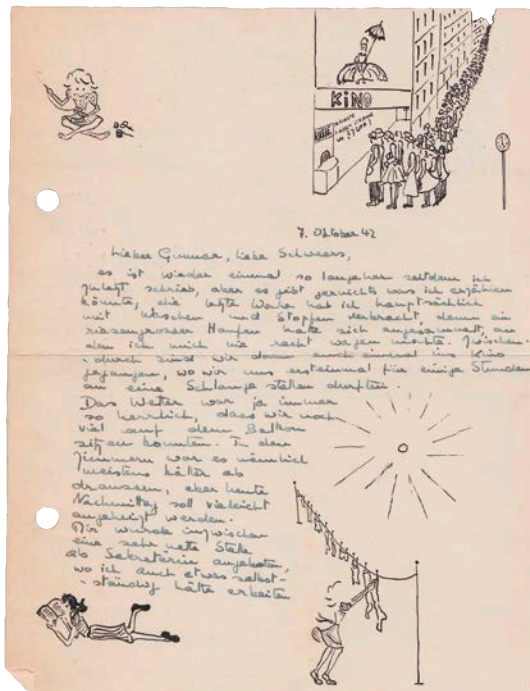 KINO
7. Oktober 42
Lieber Gunnar, liebe Schwers,
es ist wieder einmal so lange her seitdem ich
zuletzt schrieb, aber es gibt garnichts was ich erzählen
könnte, die letzte Woche hab ich hauptsächlich
mit Waschen und Stopfen verbracht denn ein
riesengrosser Haufen hatte sich angesammelt, an
den ich mich nie recht wagen mochte. Zwischen-
-durch sind wir dann auch einmal ins Kino
gegangen, wo wir uns ersteinmal für einige Stunden
an eine Schlange stellen durften.
Das Wetter war ja immer
so herrlich, dass wir noch
viel auf dem Balkon
sitzen konnten. In den
Zimmern war es nämlich
meistens kälter als
draussen, aber heute
Nachmittag soll vielleicht
angeheizt werden.
Mir wurde inzwischen
eine sehr nette Stelle
als Sekretärin angeboten,
wo ich auch etwas selbst-
-ständig hätte arbeiten